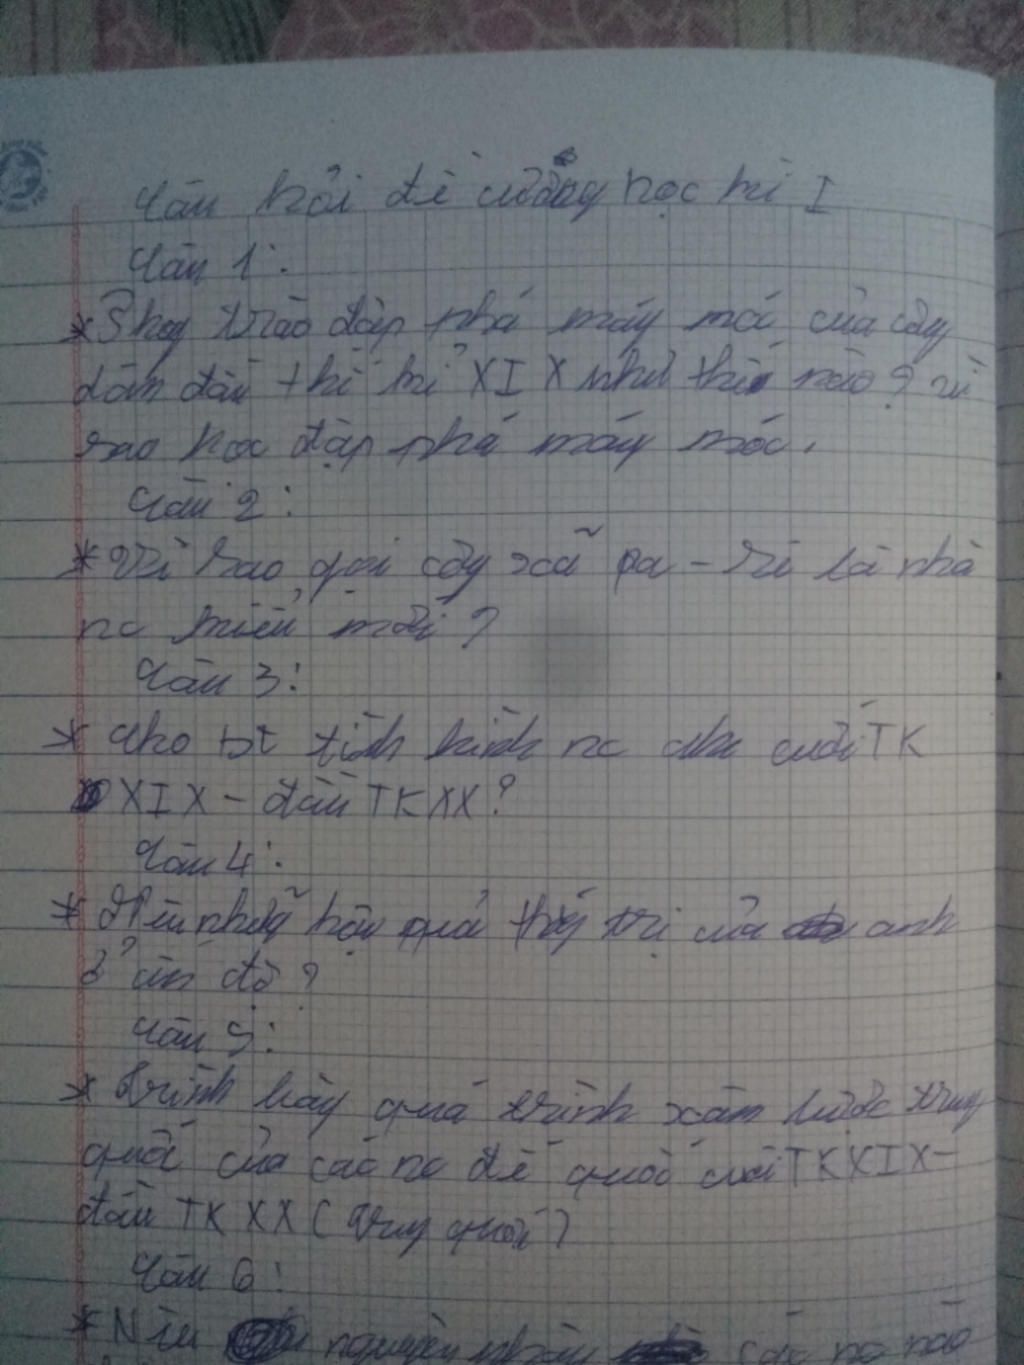 Câu hỏi đề cương học kì I
Câu 1:
* Phog trào đập phá máy móc của côg
dân đầu thế kỉ XIX như thế nào? vì
sao học đập phá máy móc.
Câu 2:
* Vì sao gọi côg xã Pa-ri là nhà
nc kiểu mới?
Câu 3:
* Cho bt tình hình nc cuối TK
XIX - đầu TK XX?
Câu 4:
* Nêu nhữg hậu quả thốg trị của anh
ở ấn độ?
Câu 5:
* Trình bày quá trình xâm lược trug
quốc của các nc đế quốc cuối TK XIX-
đầu TK XX (Trug quốc)
Câu 6:
* Nêu nguyên nhân các nc nào